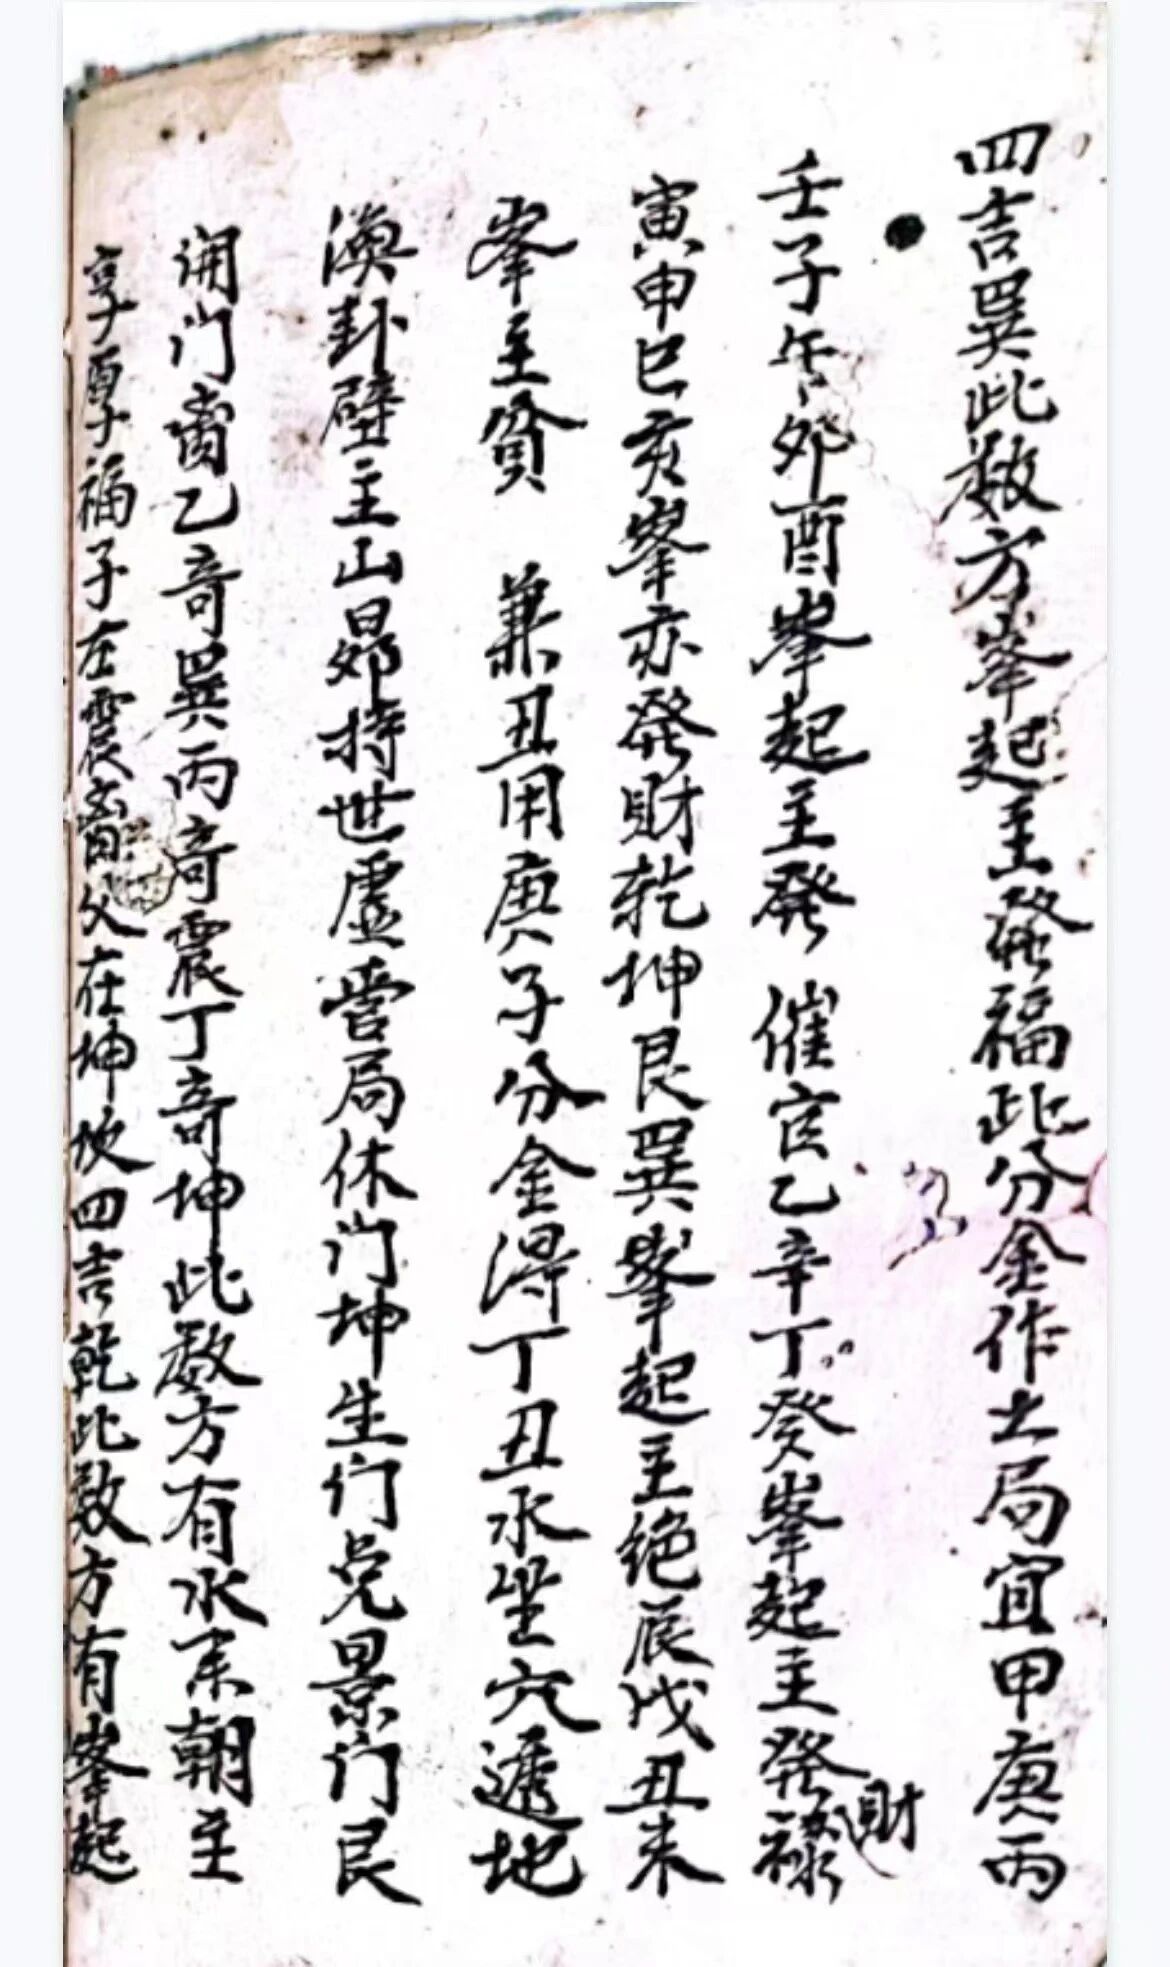 四吉巽此数方峯起主發福此分金作土局宜甲庚丙
壬子午卯酉峯起主發 催官乙辛丁癸峯起主發祿財
寅申巳亥峯亦發財乾坤艮巽峯起主绝辰戌丑未
峯主貧 兼丑用庚子分金得丁丑水坐穴透地
渙卦壁主山昴持世虚宫局休门坤生门兑景门艮
開门离乙竒巽丙竒震丁竒坤此数方有水来朝主
享厚福子在震离父在坤坎四吉乾此数方有峯起